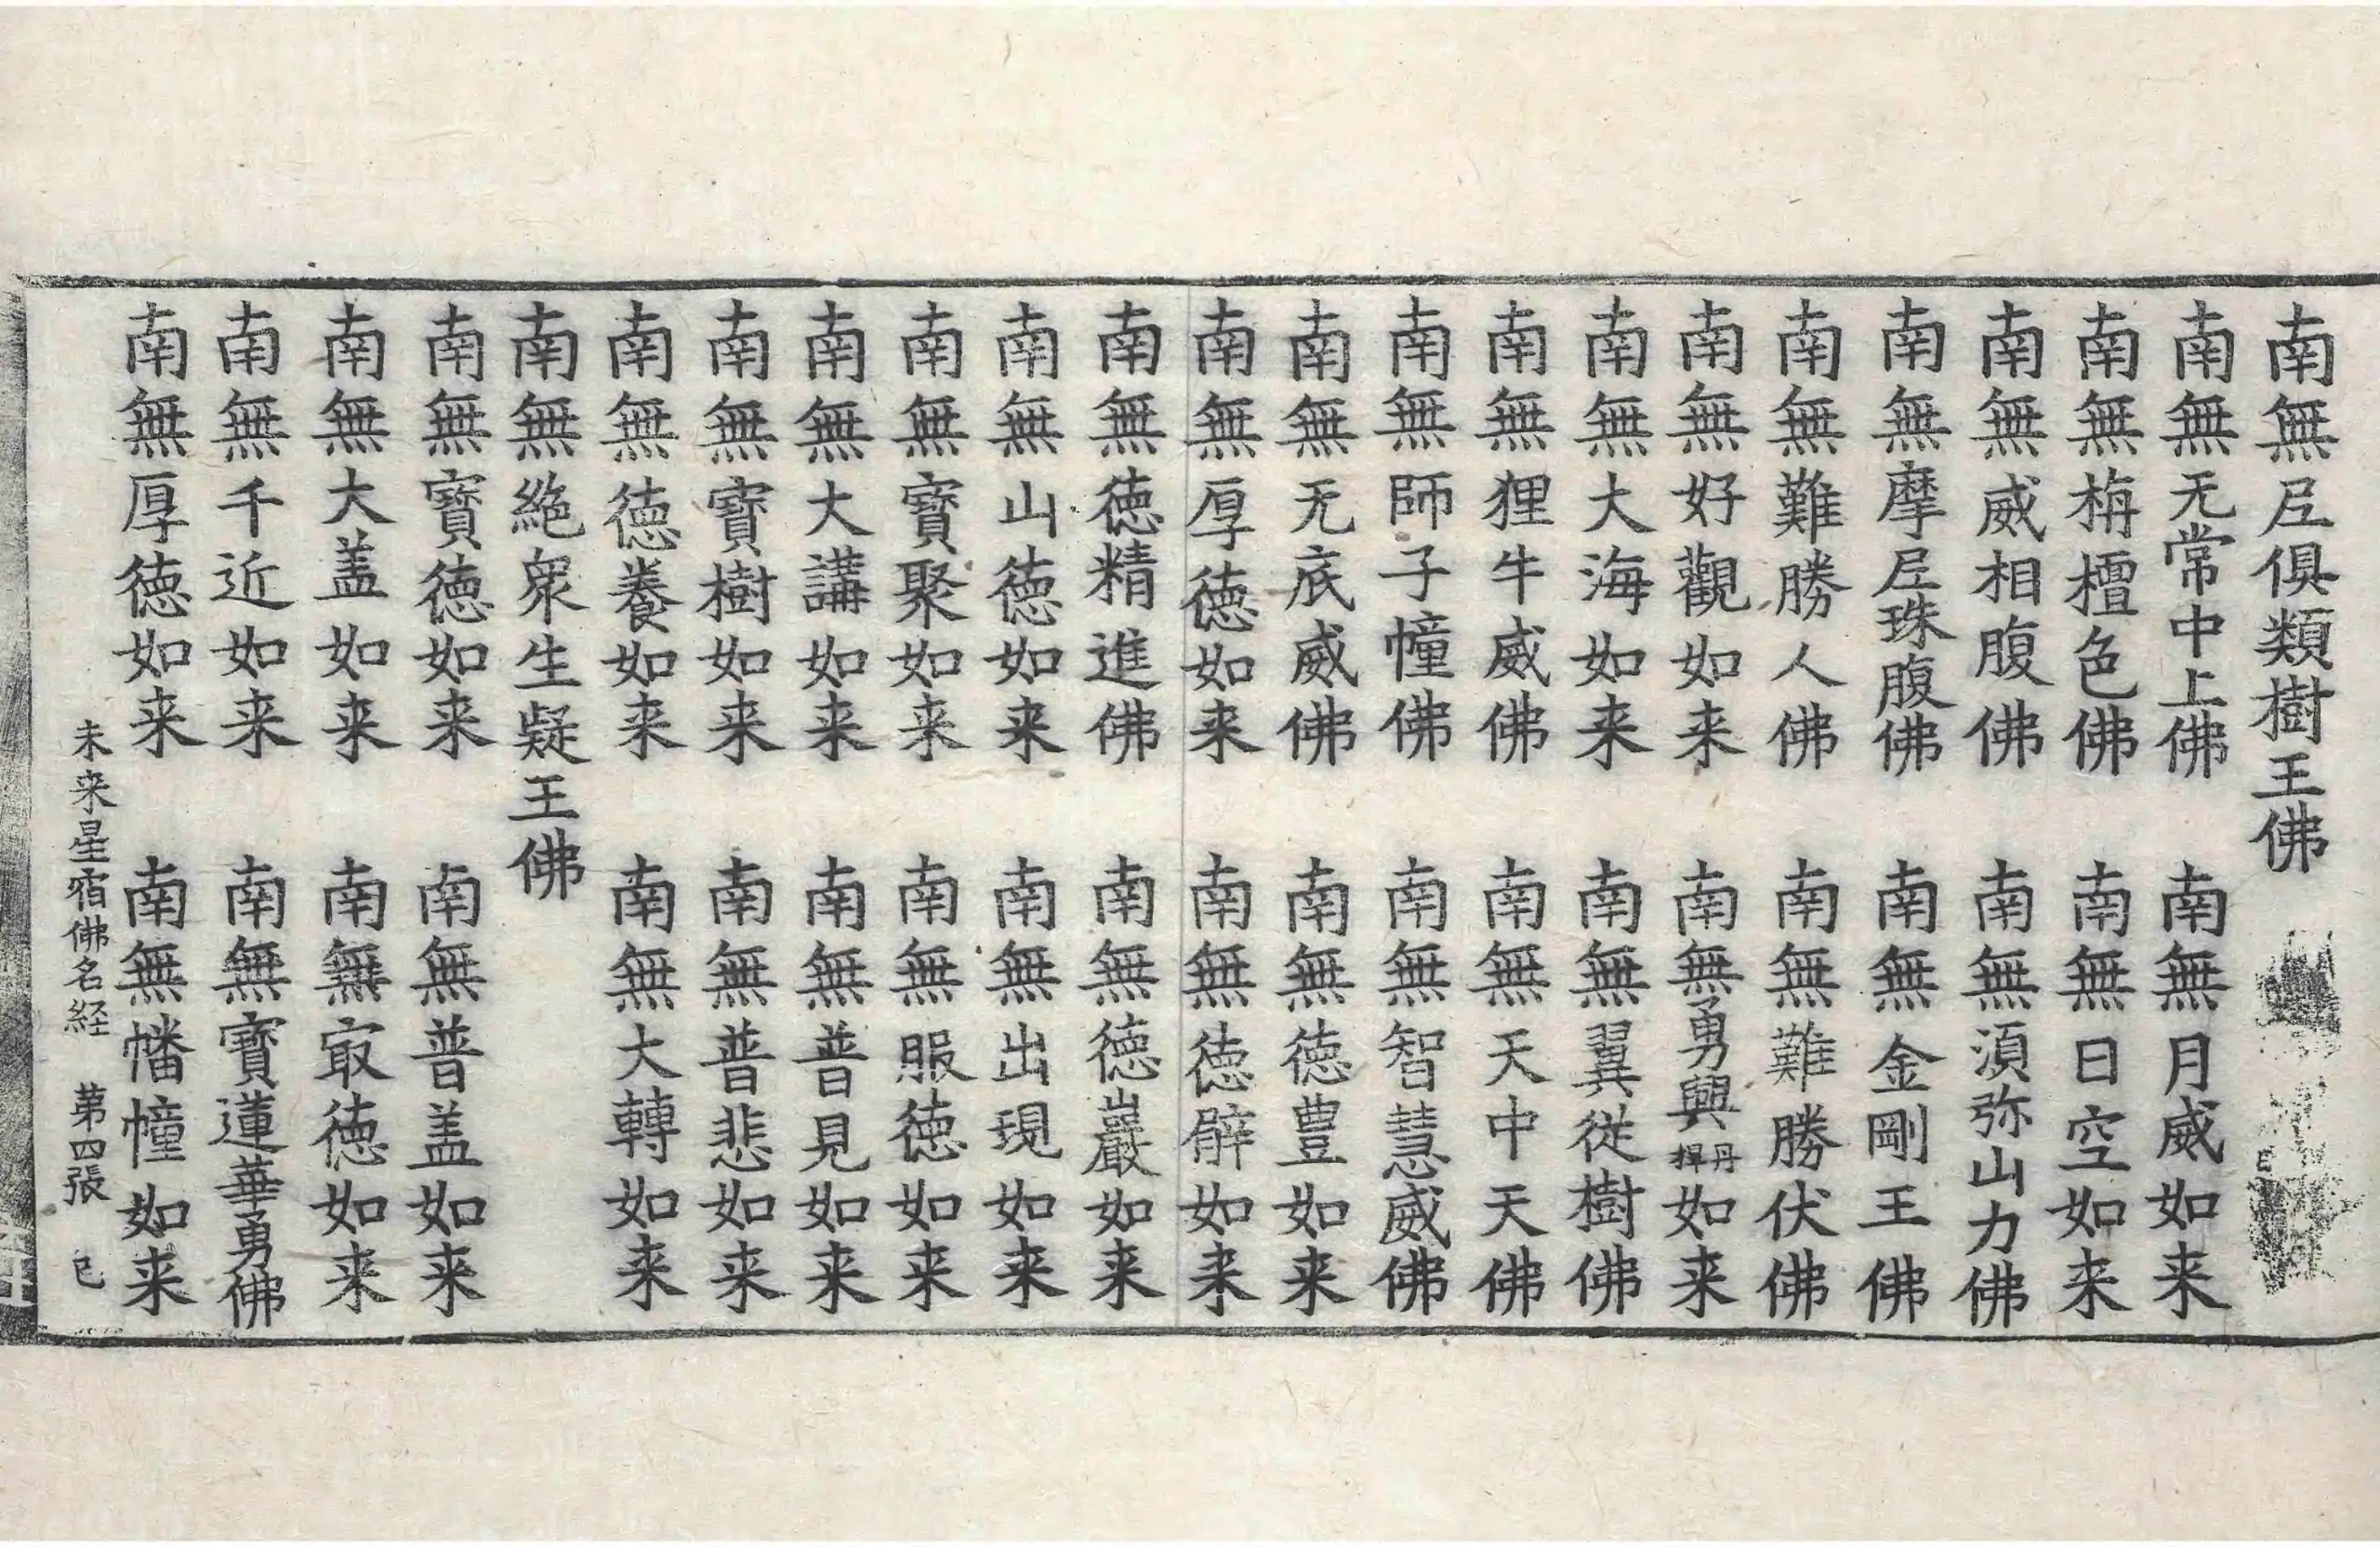 南無𡰱俱類樹王佛
南無无常中上佛　南無月威如来
南無栴檀色佛　南無日空如来
南無威相腹佛　南無湏弥山力佛
南無摩𡰱珠腹佛　南無金剛王佛
南無難勝人佛　南無難勝伏佛
南無好觀如来　南無勇興丹捍如来
南無大海如来　南無翼従樹佛
南無狸牛威佛　南無天中天佛
南無師子幢佛　南無智慧威佛
南無无底威佛　南無徳豊如来
南無厚徳如来　南無徳如来
南無徳精進佛　南無徳巖如来
南無山徳如来　南無出現如来
南無寶聚如来　南無服徳如来
南無大講如来　南無普見如来
南無寶樹如来　南無普悲如来
南無徳養如来　南無大轉如来
南無絶衆生疑王佛
南無寶徳如来　南無普盖如来
南無大盖如来　南無㝡徳如来
南無千近如来　南無寶蓮華勇佛
南無厚徳如来　南無幡幢如来
未来星宿佛名経　第四張　已